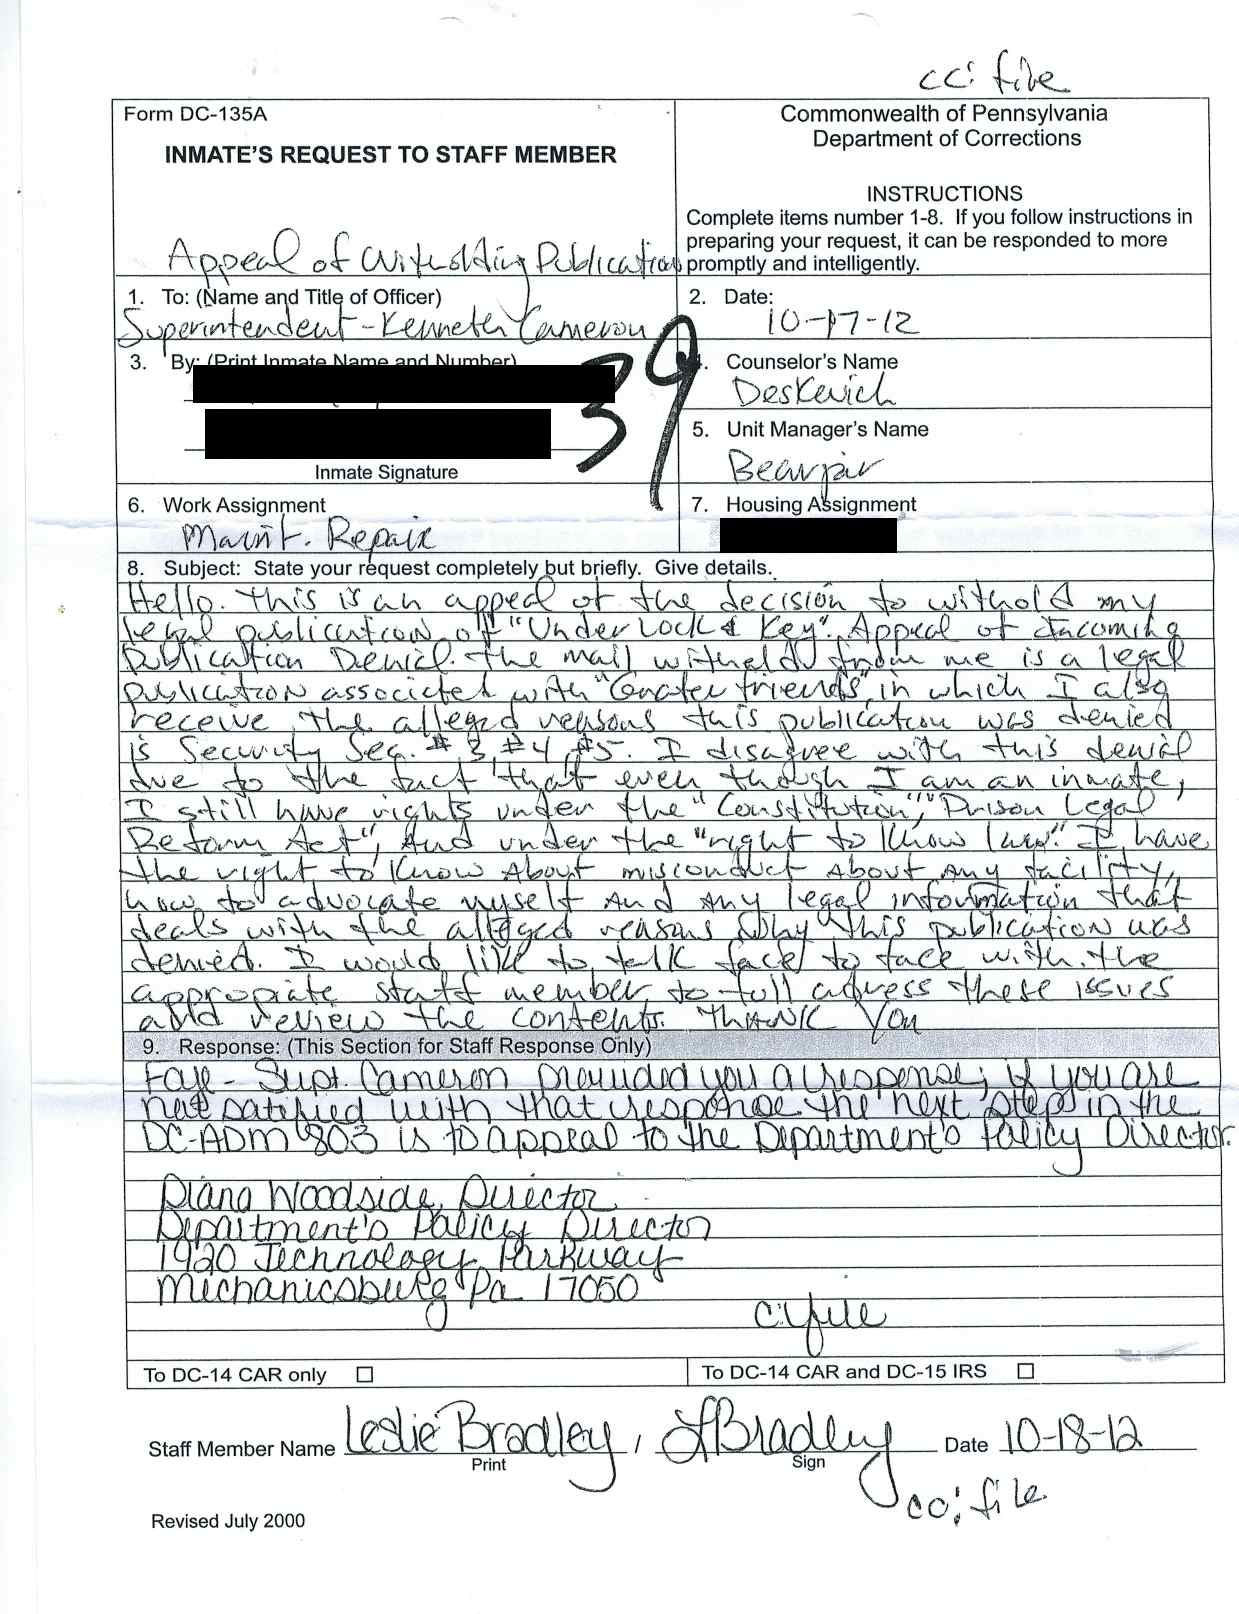 cc: file
Form DC-135A
INMATE'S REQUEST TO STAFF MEMBER
Commonwealth of Pennsylvania
Department of Corrections
INSTRUCTIONS
Complete items number 1-8. If you follow instructions in
preparing your request, it can be responded to more
promptly and intelligently.
Appeal of Witholding Publication
1. To: (Name and Title of Officer)
Superintendent - Kenneth Cameron
2. Date:
10-17-12
3. By: (Print Inmate Name and Number)
39
Inmate Signature
4. Counselor's Name
Deskevich
5. Unit Manager's Name
6. Work Assignment
Maint. Repair
7. Housing Assignment
8. Subject: State your request completely but briefly. Give details.
Hello. This is an appeal of the decision to withold my
legal publication of "Under Lock & Key". Appeal of Incoming
Publication Denial. The mail witheld from me is a legal
publication associated with "Grater friends", in which I also
receive. The alleged reasons this publication was denied
is Security Sec. #3, #4, #5. I disagree with this denial
due to the fact that even though I am an inmate,
I still have rights under the "Constitution", "Prison Legal
Reform Act", And under the "right to know law." I have
the right to know About misconduct About Any facility,
how to advocate myself And Any legal information that
deals with the alleged reasons why this publication was
denied. I would like to talk face to face with the
appropriate staff member to full adress these issues
and review the contents. THANK You
9. Response: (This Section for Staff Response Only)
- Supt. Cameron provided you a response; if you are
not satified with that response the next step in the
DC-ADM 803 is to appeal to the Department's Policy Director.
Diana Woodside, Director
Department's Policy Director
1920 Technology Parkway
Mechanicsburg Pa 17050
c: file
To DC-14 CAR only
To DC-14 CAR and DC-15 IRS
Staff Member Name Leslie Bradley, LBradley Date 10-18-12
Print Sign
cc: file
Revised July 2000